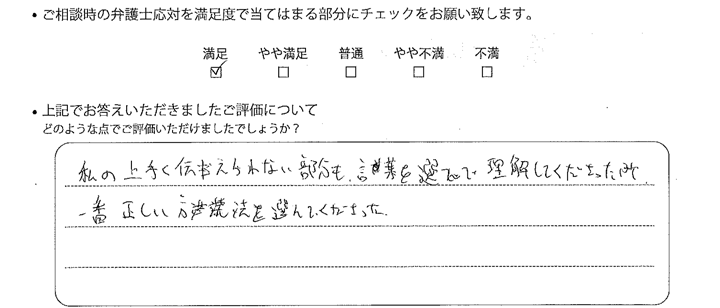 • ご相談時の弁護士応対を満足度で当てはまる部分にチェックをお願い致します。
満足 やや満足 普通 やや不満 不満
☑ ☐ ☐ ☐ ☐
• 上記でお答えいただきましたご評価について
どのような点でご評価いただけましたでしょうか？
私の上手く伝えられない部分も、言葉を選んで理解してくださった所、
一番正しい方法を選んでくださった。